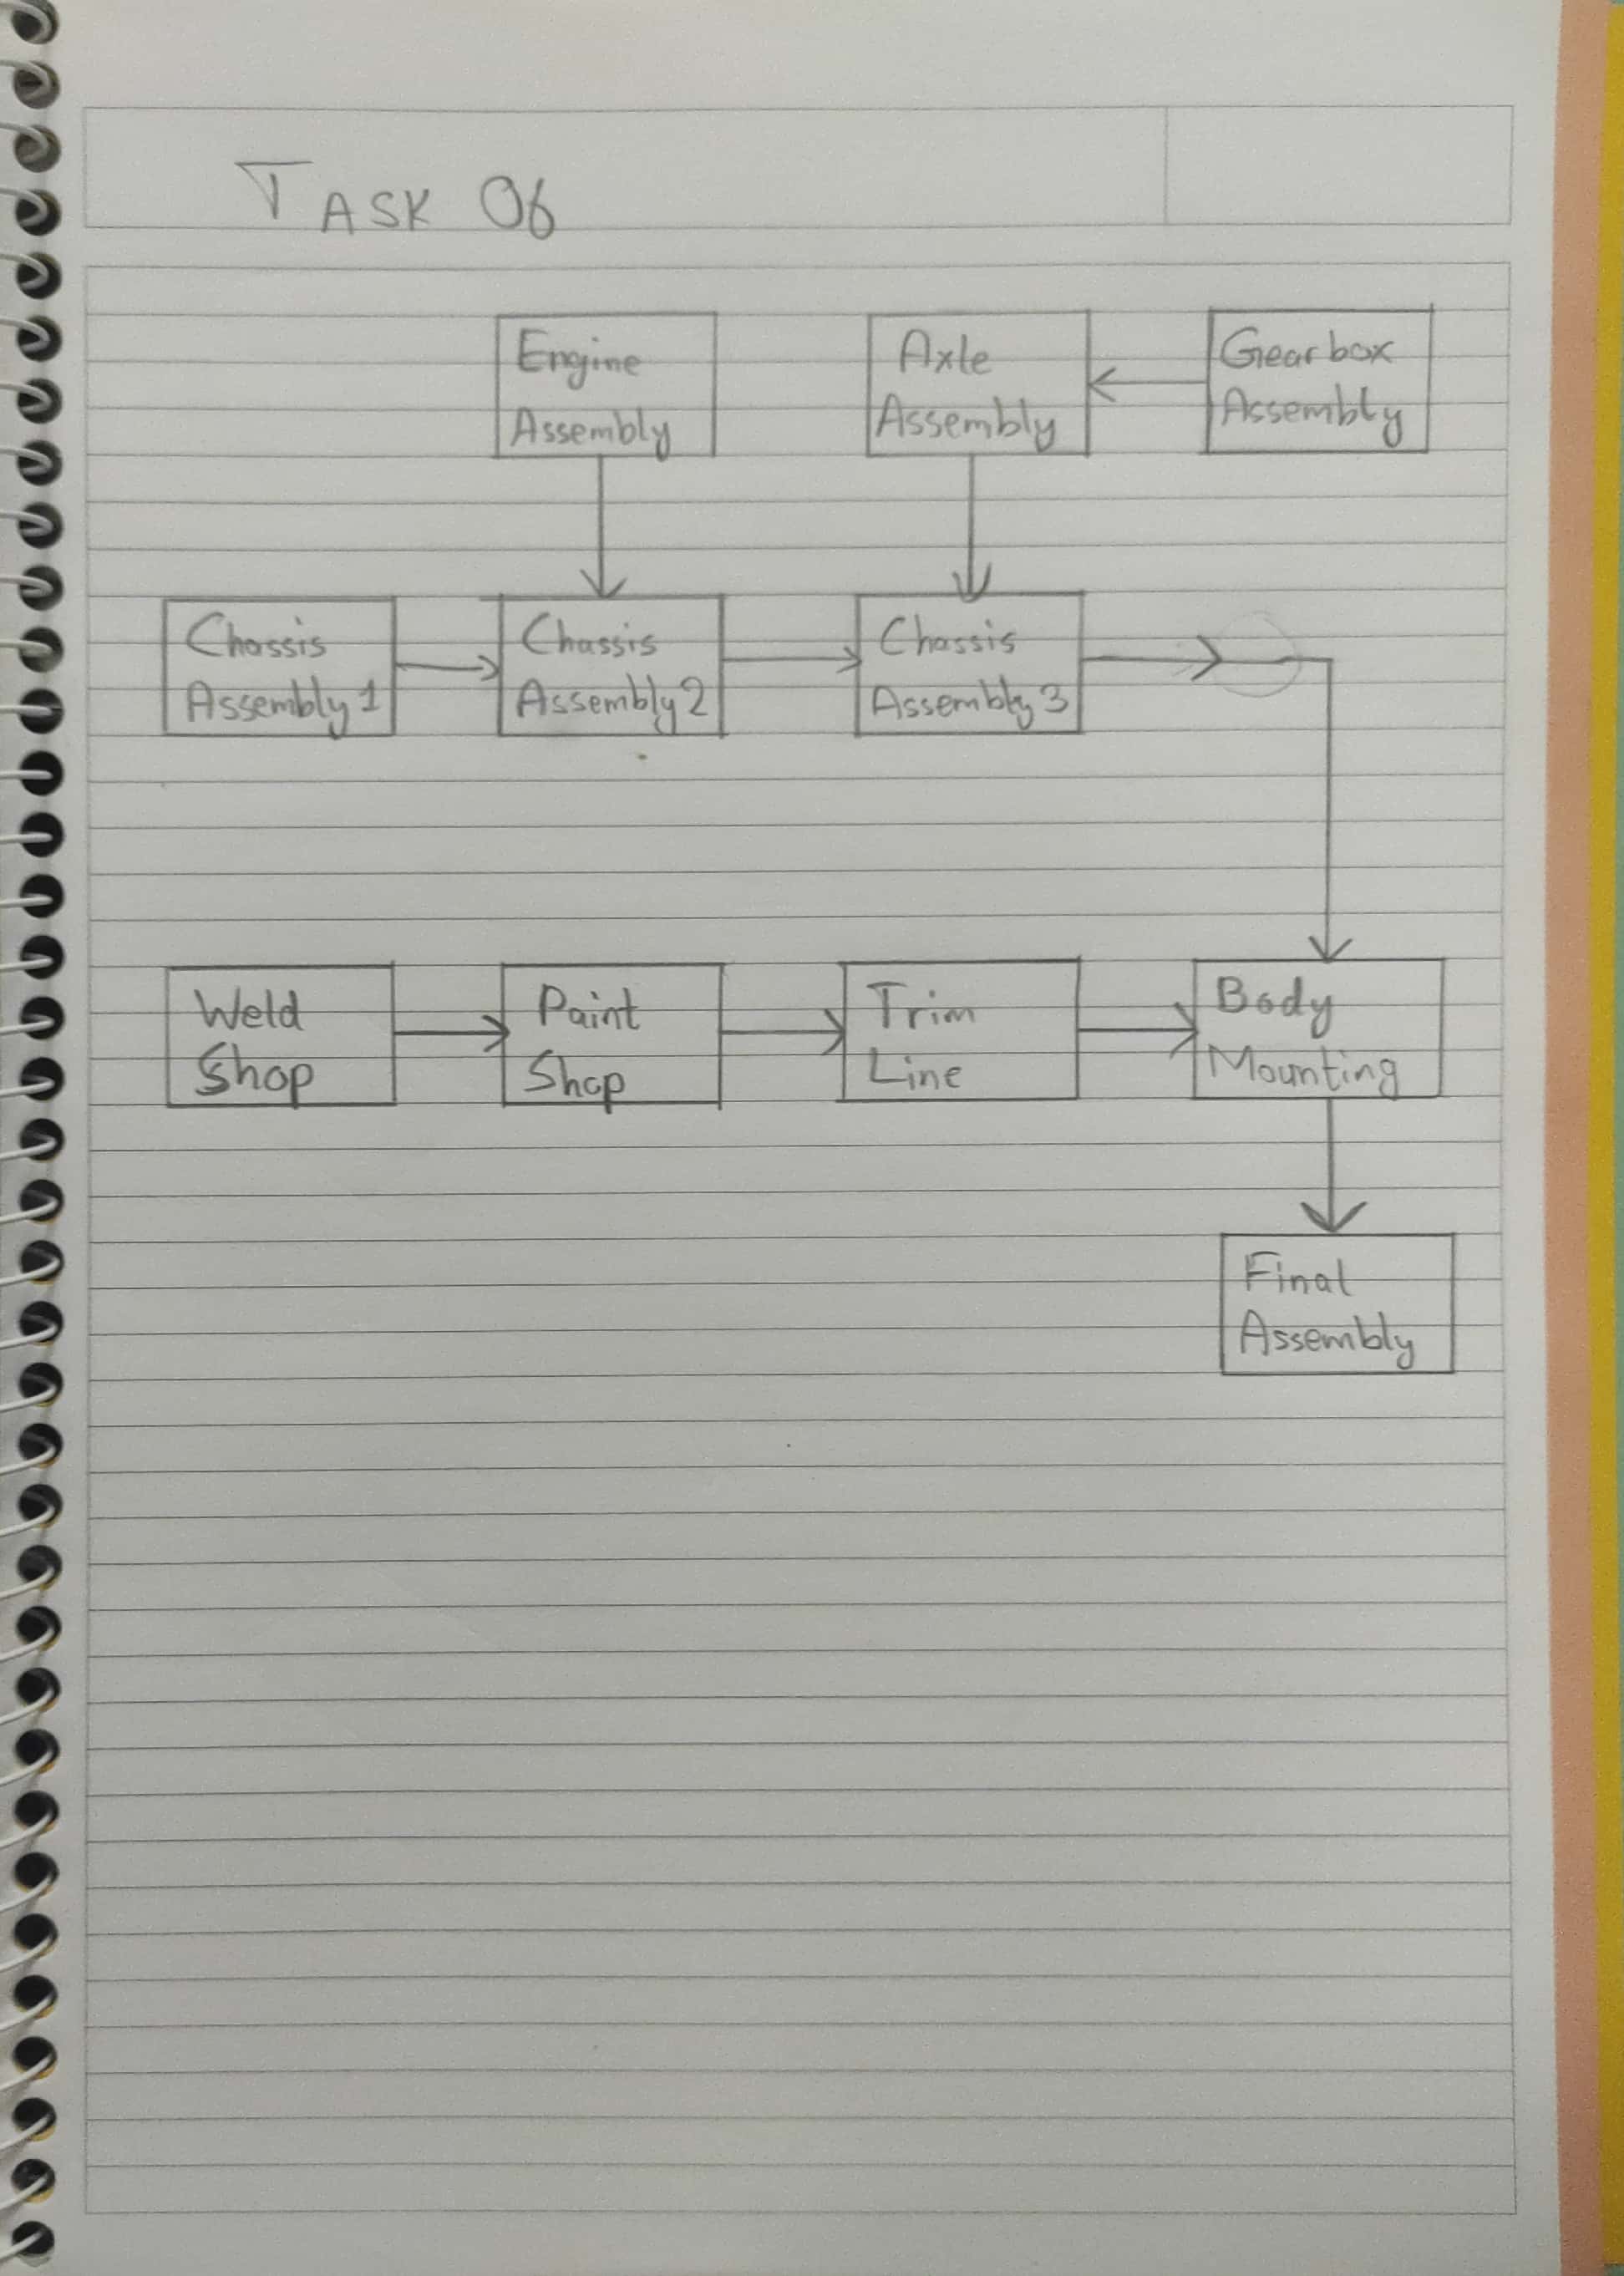 TASK 06
Engine
Assembly
Axle
Assembly
Gearbox
Assembly
Chassis
Assembly 1
Chassis
Assembly 2
Chassis
Assembly 3
Weld
Shop
Paint
Shop
Trim
Line
Body
Mounting
Final
Assembly